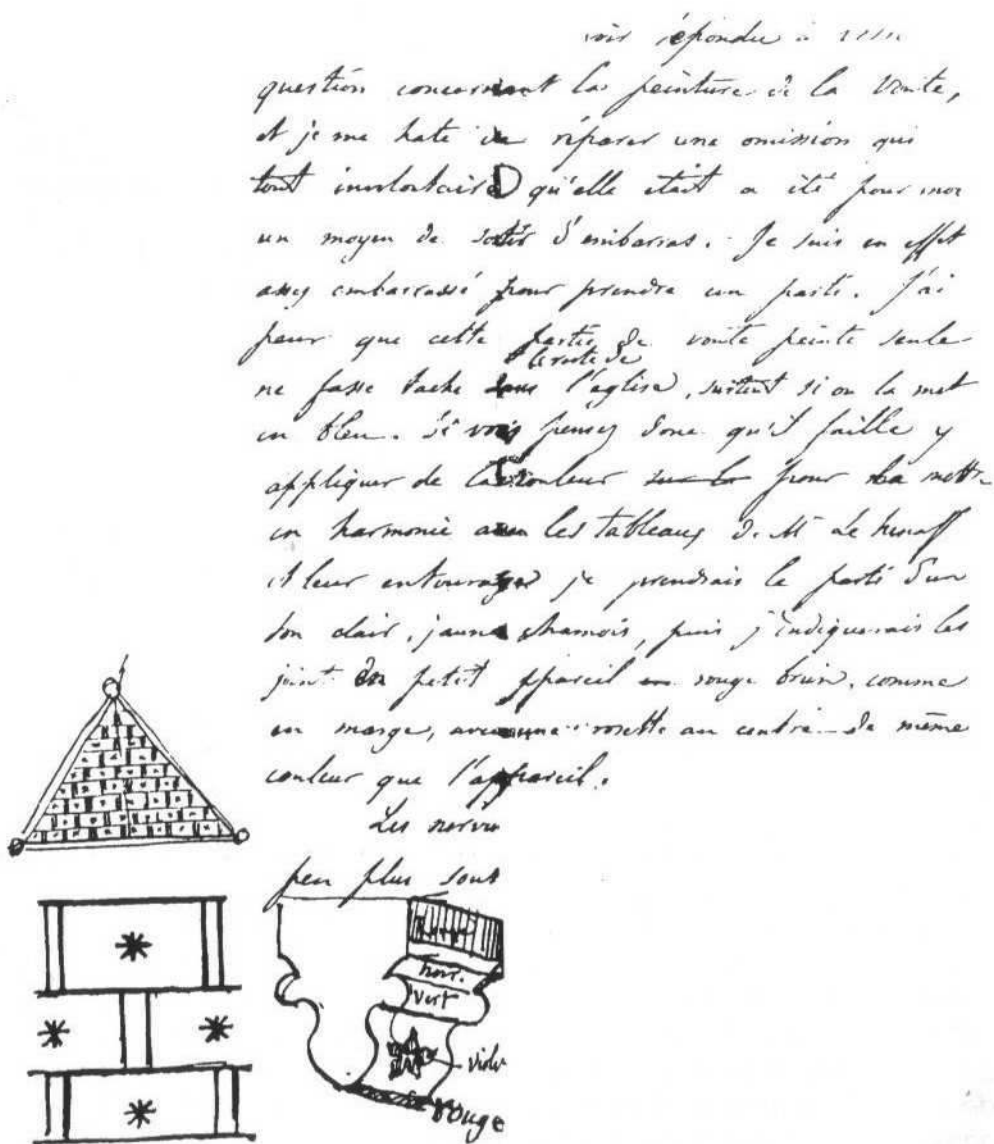 répondu à
question concernant la peinture de la voute,
et je me hate de réparer une omission qui
tout involontaire qu'elle était a été pour moi
un moyen de sortir d'embarras. Je suis en effet
assez embarrassé pour prendre un parti. J'ai
peur que cette partie de voute peinte seule
le reste de
ne fasse tache dans l'église, surtout si on la met
en bleu. Si vous pensez donc qu'il faille y
appliquer de la couleur sur la pour la mettre
en harmonie avec les tableaux de Mr Le Henaff
et leur entourage je prendrais le parti d'un
ton clair, jaune chamois, puis j'indiquerais les
joint en petit appareil en rouge brun, comme
en marge, avec une rosette au centre de même
couleur que l'appareil.
Les nervu
peu plus sout
Rouge
noir.
vert
viole
rouge